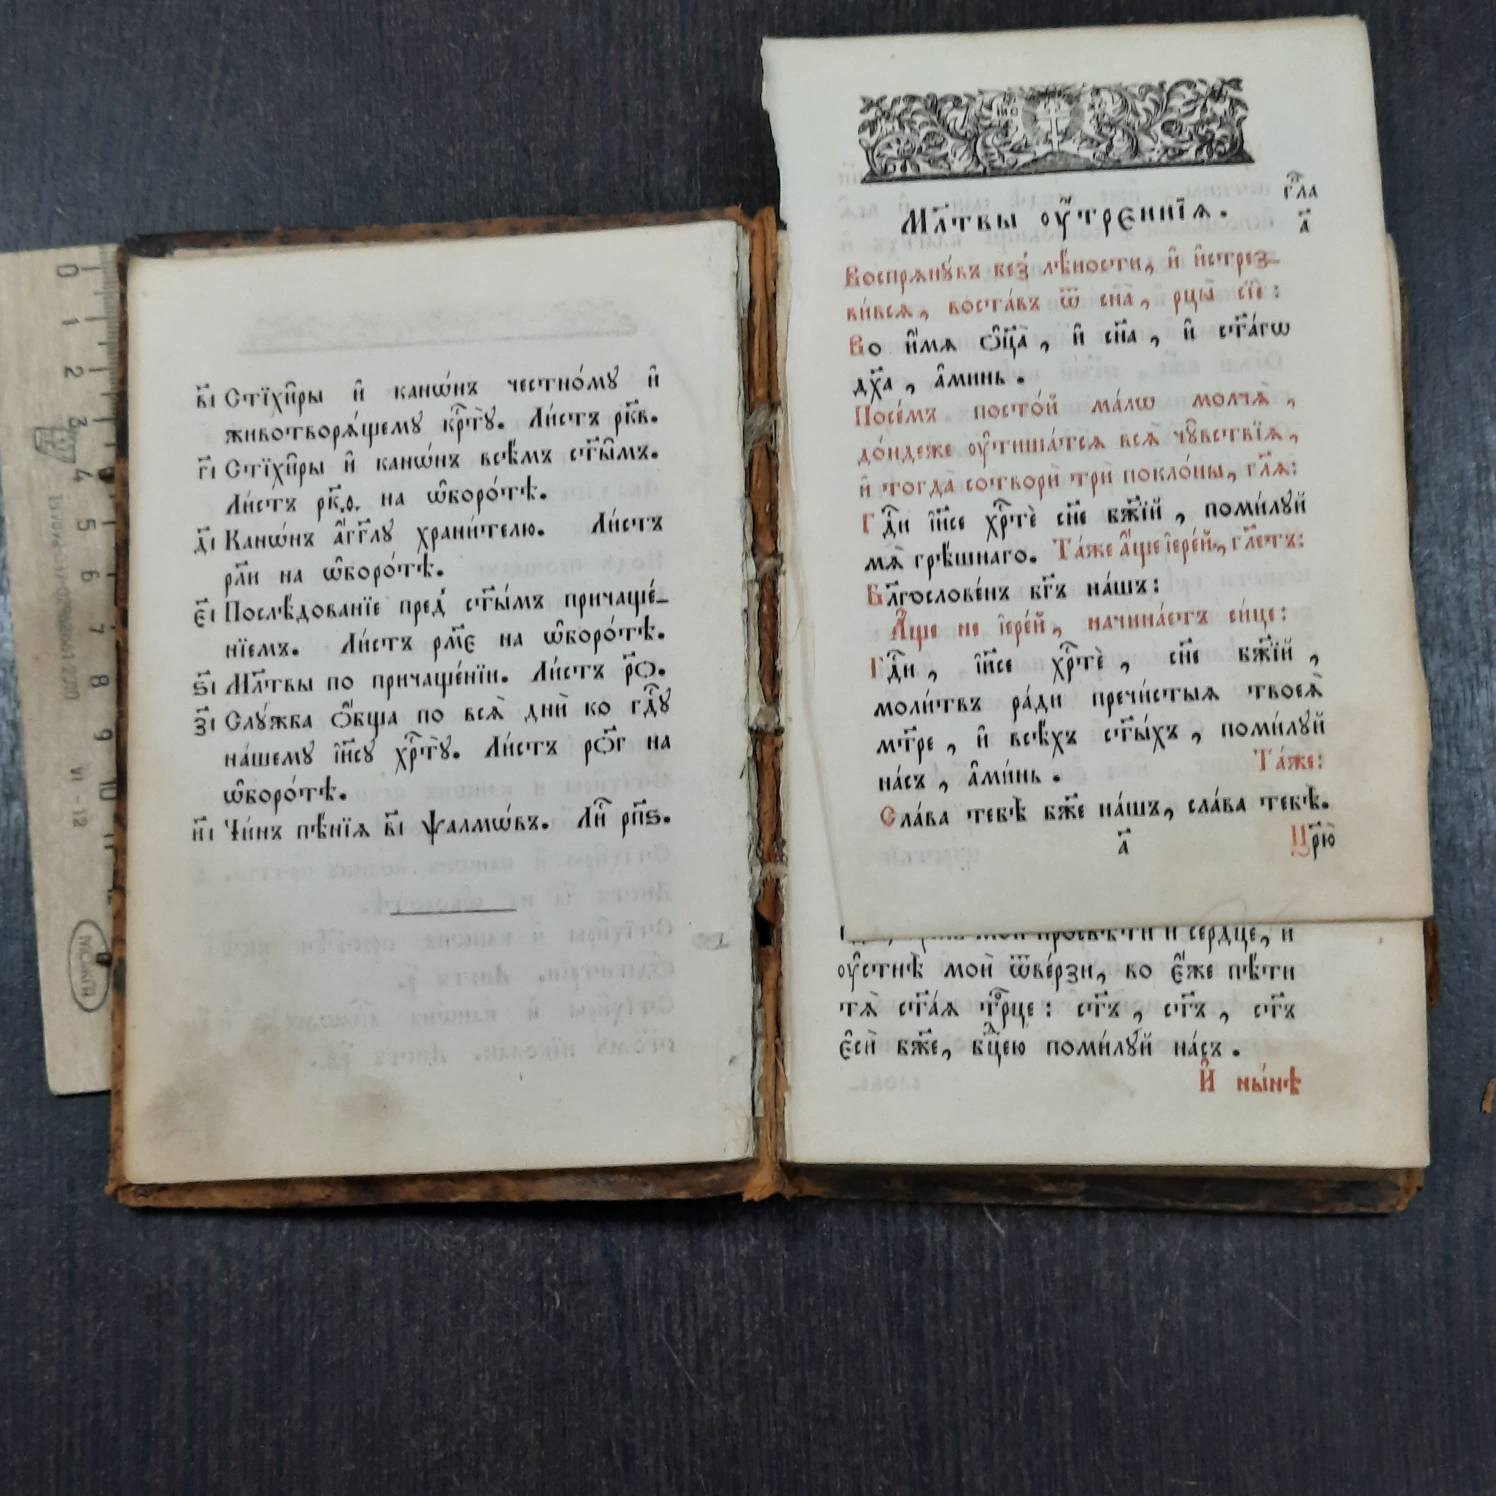 в҃і Стїхи̑ры и҆ канѡ́нъ честно́му и҆
животворѧ́щему крⷭ҇тꙋ̀. Ли́стъ рк҃в.
г҃і Стїхи̑ры и҆ канѡ́нъ всѣ́мъ ст҃ы̑мъ.
Ли́стъ рк҃ѳ. на ѡ҆боро́тѣ.
д҃і Канѡ́нъ а҆́гг҃лꙋ храни́телю. Ли́стъ
рл҃и на ѡ҆боро́тѣ.
є҃і Послѣ́дованїе пред̾ ст҃ы́мъ причаще́-
нїемъ. Ли́стъ рм҃є на ѡ҆боро́тѣ.
ѕ҃і Мл҃твы по причаще́нїи. Ли́стъ р҃о.
з҃і Слꙋ́жба ѻ҆́бща по всѧ̀ дни̑ ко гдⷭ҇ꙋ
на́шемꙋ і҆и҃сꙋ хрⷭ҇тꙋ̀. Ли́стъ ро҃г на
ѡ҆боро́тѣ.
и҃і Чи́нъ пѣ́нїѧ в҃і ѱалмѡ́въ. Лиⷭ҇ рп҃ѕ.
Мл҃твы ᲂу҆́тренниїѧ.
гл҃а
а҃
Воспрѧнꙋ́въ без̾ лѣ́ности, и҆ и҆стрез-
ви́всѧ, воста́въ ѿ сна̀, рцы̀ сїѐ:
Во и҆́мѧ ѻ҆ц҃а̀, и҆ сн҃а, и҆ ст҃а́гѡ
дх҃а, а҆ми́нь.
Посе́мъ посто́й ма́лѡ молчѧ̀,
до́ндеже ᲂу҆тиша́тсѧ всѧ̑ чꙋ̑вствїѧ,
и҆ тогда̀ сотворѝ трѝ покло́ны, гл҃ѧ:
Гдⷭ҇и і҆и҃се хрⷭ҇тѐ сн҃е бж҃їй, поми́лꙋй
мѧ̀ грѣ́шнаго. Та́же а҆́ще і҆ере́й, гл҃етъ:
Бл҃гослове́нъ бг҃ъ на́шъ:
А҆́ще не і҆ере́й, начина́етъ си́це:
Гдⷭ҇и, і҆и҃се хрⷭ҇тѐ, сн҃е бж҃їй,
моли́твъ ра́ди пречи́стыѧ твоеѧ̀
мт҃ре, и҆ всѣ́хъ ст҃ы́хъ, поми́лꙋй
на́съ, а҆ми́нь. Та́же:
Сла́ва тебѣ̀ бж҃е на́шъ, сла́ва тебѣ̀.
а҃ Цр҃ю̀
мо́й просвѣтѝ и҆ се́рдце, и҆
ᲂу҆стнѣ̀ моѝ ѿве́рзи, во є҆́же пѣ́ти
тѧ̀ ст҃а́ѧ трⷪ҇це: ст҃ъ, ст҃ъ, ст҃ъ
є҆сѝ бж҃е, бцⷣею поми́лꙋй на́съ.
И҆ ны́нѣ
0 1 2 3 4 5 6 7 8 9 10 11
VI - 12